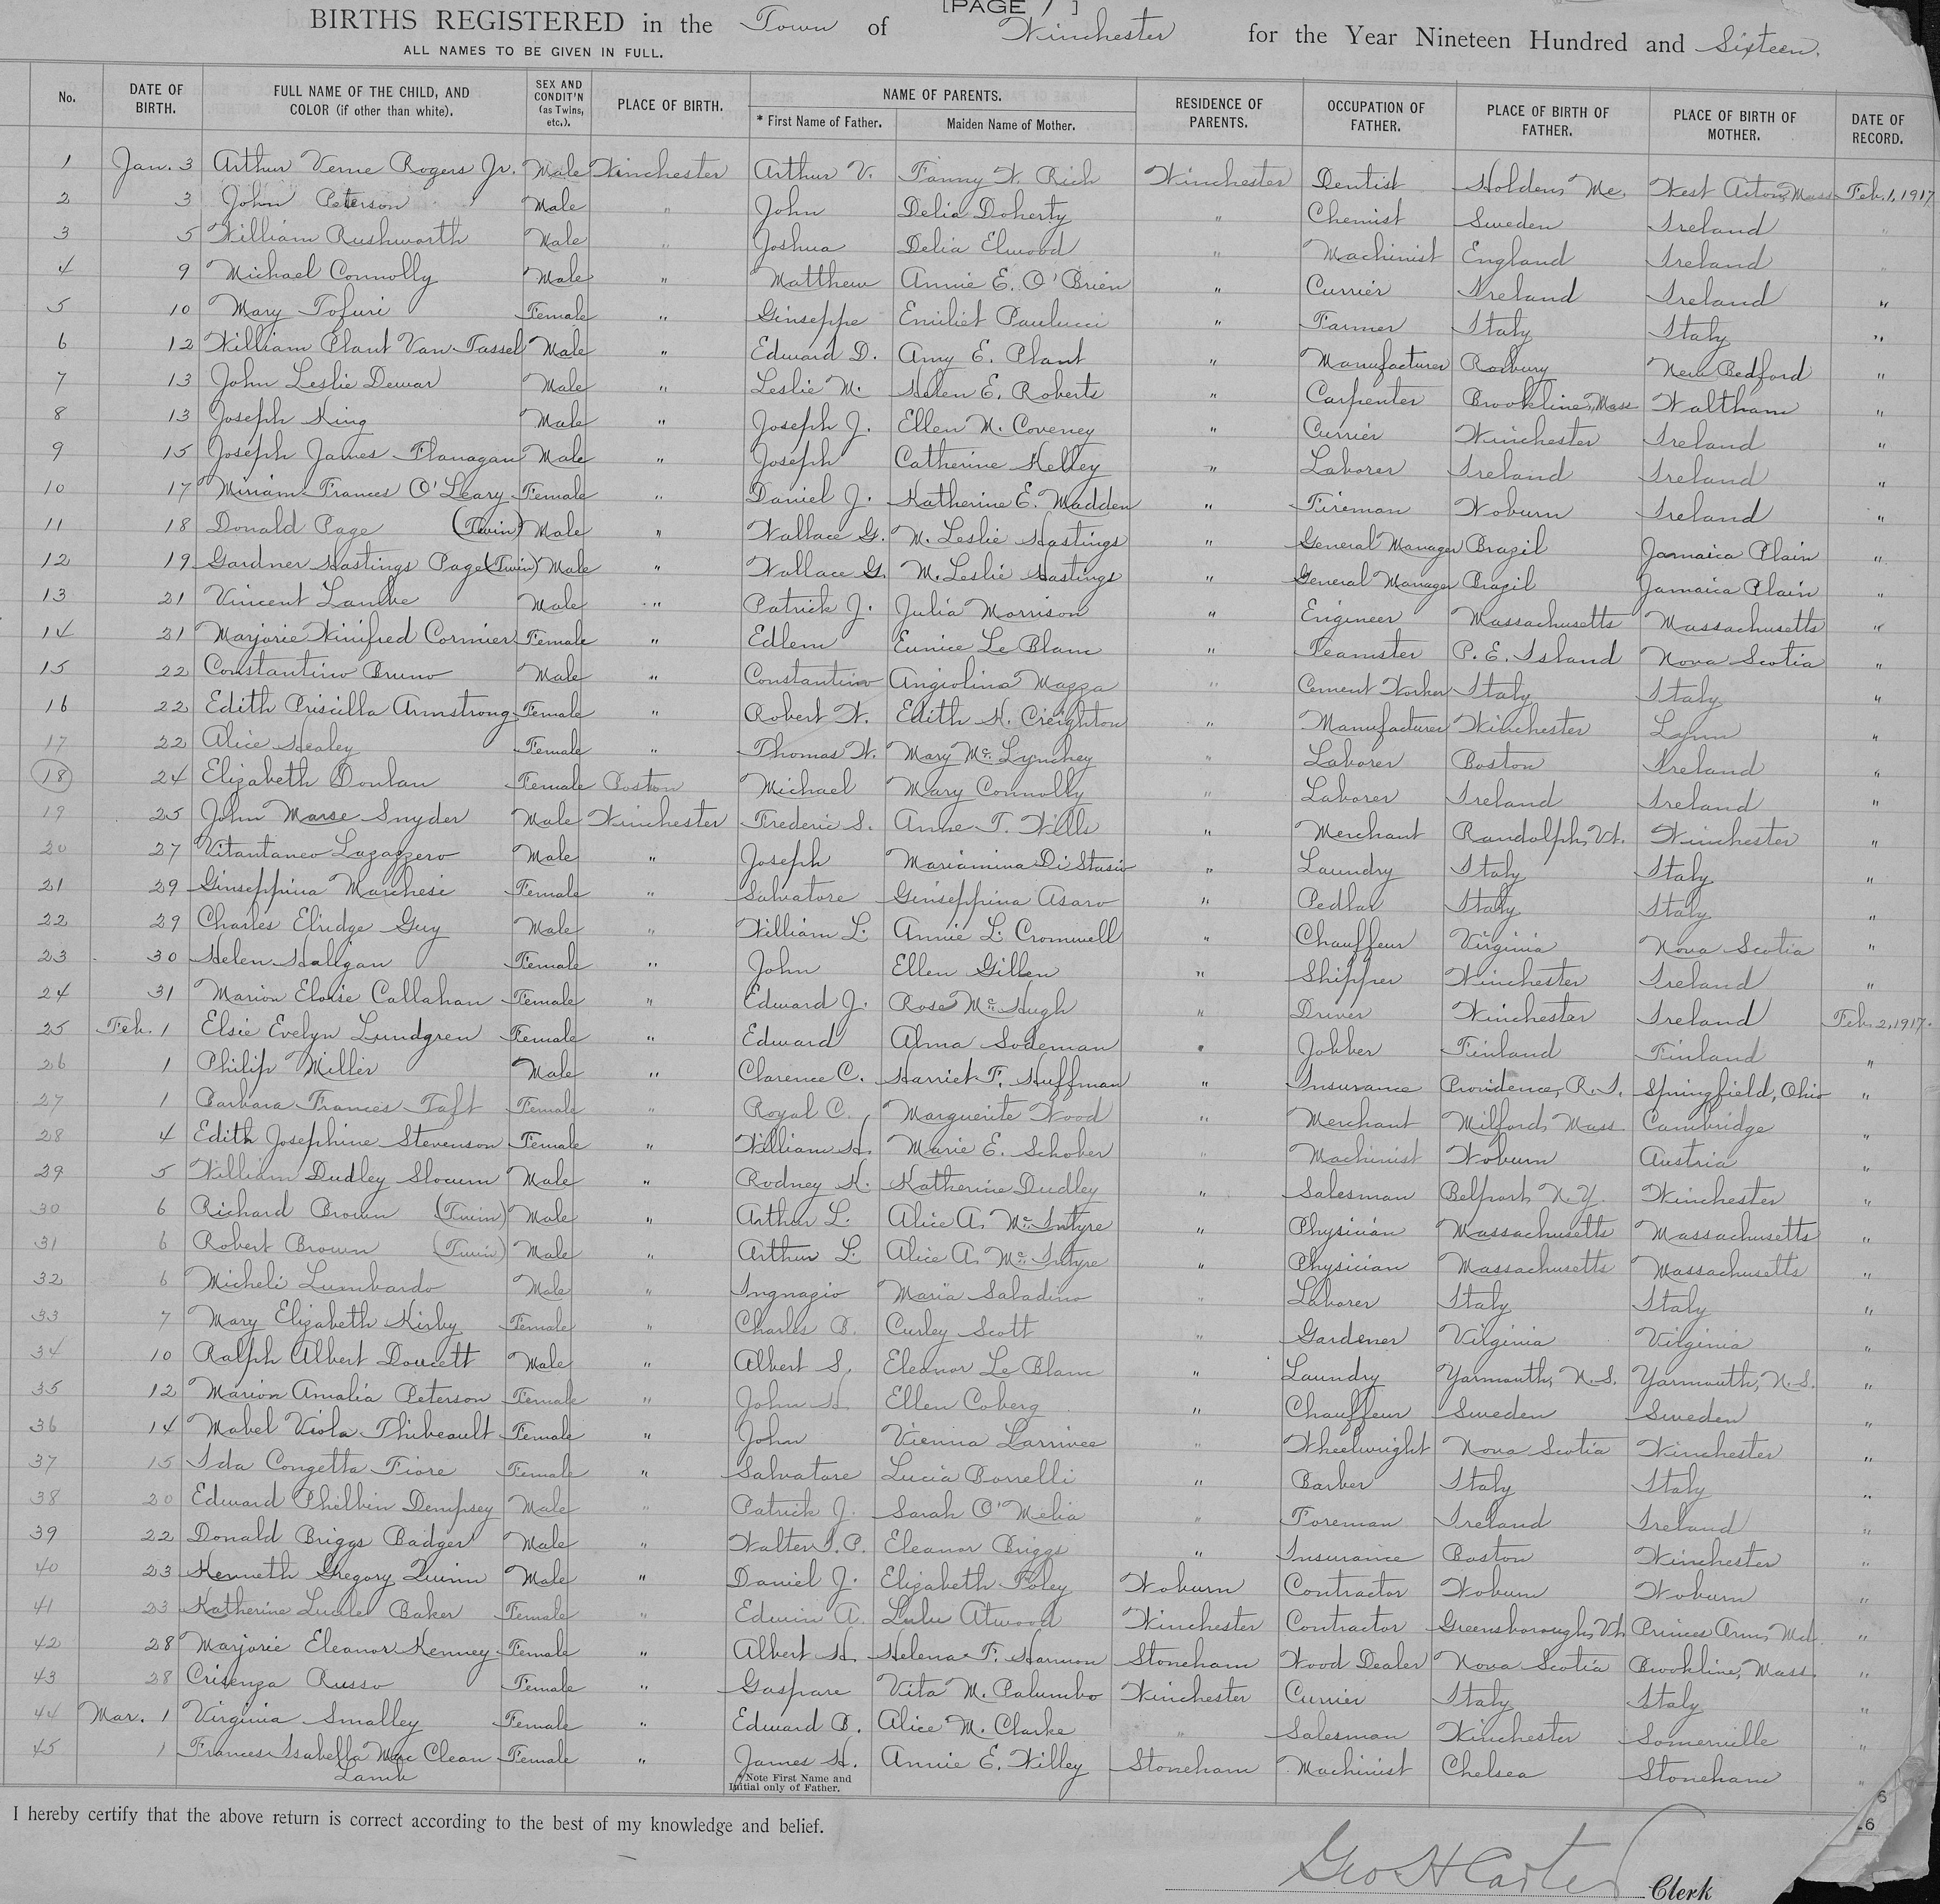 [PAGE 1 ]
BIRTHS REGISTERED in the Town of Winchester for the Year Nineteen Hundred and Sixteen.
ALL NAMES TO BE GIVEN IN FULL.
No. DATE OF BIRTH. FULL NAME OF THE CHILD, AND COLOR (if other than white). SEX AND CONDIT'N (as Twins, etc.). PLACE OF BIRTH. NAME OF PARENTS. * First Name of Father. Maiden Name of Mother. RESIDENCE OF PARENTS. OCCUPATION OF FATHER. PLACE OF BIRTH OF FATHER. PLACE OF BIRTH OF MOTHER. DATE OF RECORD.
1 Jan. 3 Arthur Verne Rogers Jr. Male Winchester Arthur V. Fanny W. Rich Winchester Dentist Holden, Me. West Acton, Mass Feb. 1, 1917
2 3 John Peterson Male " John Delia Doherty " Chemist Sweden Ireland "
3 5 William Rushworth Male " Joshua Delia Elwood " Machinist England Ireland "
4 9 Michael Connolly Male " Matthew Annie E. O'Brien " Currier Ireland Ireland "
5 10 Mary Tofuri Female " Giuseppe Emiliet Paulucci " Farmer Italy Italy "
6 12 William Plant Van Tassel Male " Edward D. Amy E. Plant " Manufacturer Roxbury New Bedford "
7 13 John Leslie Dewar Male " Leslie M. Helen E. Roberts " Carpenter Brookline, Mass Waltham "
8 13 Joseph King Male " Joseph J. Ellen M. Coveney " Currier Winchester Ireland "
9 15 Joseph James Flanagan Male " Joseph Catherine Kelley " Laborer Ireland Ireland "
10 17 Miriam Frances O'Leary Female " Daniel J. Katherine E. Madden " Fireman Woburn Ireland "
11 18 Donald Page (Twin) Male " Wallace G. M. Leslie Hastings " General Manager Brazil Jamaica Plain "
12 19 Gardner Hastings Page (Twin) Male " Wallace G. M. Leslie Hastings " General Manager Brazil Jamaica Plain "
13 21 Vincent Lambe Male " Patrick J. Julia Morrison " Engineer Massachusetts Massachusetts "
14 21 Marjorie Winifred Cormier Female " Edlem Eunice Le Blanc " Teamster P. E. Island Nova Scotia "
15 22 Constantino Bruno Male " Constantino Angiolina Mazza " Cement Worker Italy Italy "
16 22 Edith Priscilla Armstrong Female " Robert W. Edith H. Creighton " Manufacturer Winchester Lynn "
17 22 Alice Healey Female " Thomas W. Mary Mc Lynchey " Laborer Boston Ireland "
18 24 Elizabeth Donlan Female Boston Michael Mary Connolly " Laborer Ireland Ireland "
19 25 John Marse Snyder Male Winchester Frederic S. Anne T. Wills " Merchant Randolph, Vt. Winchester "
20 27 Vitantaneo Lazazzero Male " Joseph Mariamina Di Stasio " Laundry Italy Italy "
21 29 Giuseppina Marchesi Female " Salvatore Giuseppina Asaro " Pedlar Italy Italy "
22 29 Charles Elridge Guy Male " William L. Annie L. Cromwell " Chauffeur Virginia Nova Scotia "
23 30 Helen Halligan Female " John Ellen Gillen " Shipper Winchester Ireland "
24 31 Marion Eloise Callahan Female " Edward J. Rose McHugh " Driver Winchester Ireland "
25 Feb. 1 Elsie Evelyn Lundgren Female " Edward Alma Sodeman " Jobber Finland Finland Feb. 2, 1917.
26 1 Philip Miller Male " Clarence C. Harriet F. Huffman " Insurance Providence, R. I. Springfield, Ohio "
27 1 Barbara Frances Taft Female " Royal C. Marguerite Wood " Merchant Milford, Mass. Cambridge "
28 4 Edith Josephine Stevenson Female " William H. Marie E. Schober " Machinist Woburn Austria "
29 5 William Dudley Slocum Male " Rodney H. Katherine Dudley " Salesman Belport, N. Y. Winchester "
30 6 Richard Brown (Twin) Male " Arthur L. Alice A. McIntyre " Physician Massachusetts Massachusetts "
31 6 Robert Brown (Twin) Male " Arthur L. Alice A. McIntyre " Physician Massachusetts Massachusetts "
32 6 Micheli Lumbardo Male " Ingnazio Maria Saladino " Laborer Italy Italy "
33 7 Mary Elizabeth Kirby Female " Charles B. Curley Scott " Gardener Virginia Virginia "
34 10 Ralph Albert Doucett Male " Albert S. Eleanor Le Blanc " Laundry Yarmouth, N. S. Yarmouth, N. S. "
35 12 Marion Amalia Peterson Female " John H. Ellen Coberg " Chauffeur Sweden Sweden "
36 14 Mabel Viola Thibeault Female " John Vienna Larrivee " Wheelwright Nova Scotia Winchester "
37 15 Ida Congetta Fiore Female " Salvatore Lucia Borrelli " Barber Italy Italy "
38 20 Edward Philbin Dempsey Male " Patrick J. Sarah O'Melia " Foreman Ireland Ireland "
39 22 Donald Briggs Badger Male " Walter I. P. Eleanor Briggs " Insurance Boston Winchester "
40 23 Kenneth Gregory Quinn Male " Daniel J. Elizabeth Foley Woburn Contractor Woburn Woburn "
41 23 Katherine Lucile Baker Female " Edwin A. Lulu Atwood Winchester Contractor Greensborough, Vt. Princes Ann, Md. "
42 28 Marjorie Eleanor Kenney Female " Albert H. Helena F. Harmon Stoneham Wood Dealer Nova Scotia Brookline, Mass. "
43 28 Crisenza Russo Female " Gaspare Vita M. Palumbo Winchester Currier Italy Italy "
44 Mar. 1 Virginia Smalley Female " Edward B. Alice M. Clarke " Salesman Winchester Somerville "
45 1 Frances Isabella Mac Clean Female " James H. Annie E. Willey Stoneham Machinist Chelsea Stoneham "
Lamb
* Note First Name and Initial only of Father.
I hereby certify that the above return is correct according to the best of my knowledge and belief.
Geo H Carter Clerk